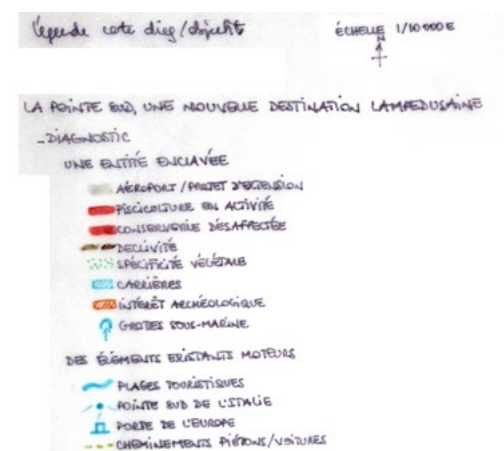 Légende carte diag/objectifs
ÉCHELLE 1/10 000 E
N
LA POINTE SUD, UNE NOUVELLE DESTINATION LAMPEDUSAINE
- DIAGNOSTIC
UNE ENTITÉ ENCLAVÉE
AÉROPORT / PROJET D'EXTENSION
PISCICULTURE EN ACTIVITÉ
CONSERVERIE DÉSAFFECTÉE
DECLIVITÉ
SPÉCIFICITÉ VÉGÉTALE
CARRIÈRES
INTÉRÊT ARCHÉOLOGIQUE
GROTTES SOUS-MARINE
DES ÉLÉMENTS EXISTANTS MOTEURS
PLAGES TOURISTIQUES
POINTE SUD DE L'ITALIE
PORTE DE L'EUROPE
CHEMINEMENTS PIÉTONS/VOITURES